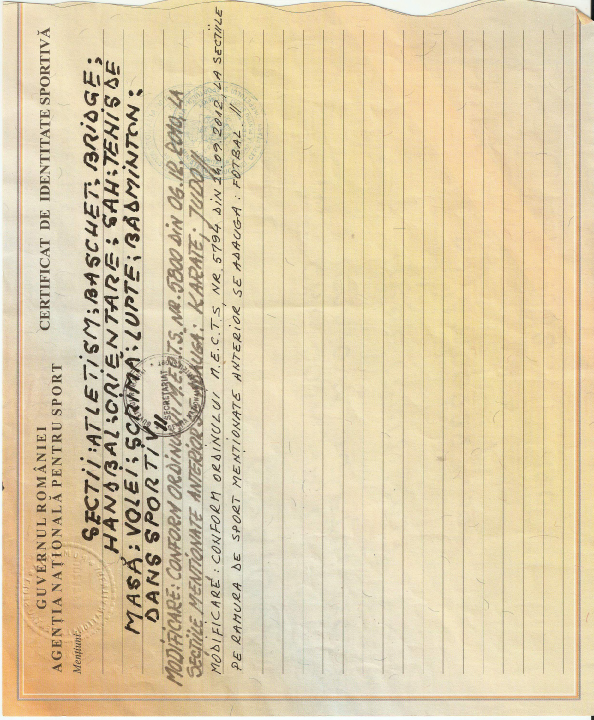 GUVERNUL ROMÂNIEI
AGENȚIA NAȚIONALĂ PENTRU SPORT
CERTIFICAT DE IDENTITATE SPORTIVĂ
Mențiuni:
SECTII: ATLETISM; BASCHET; BRIDGE;
HANDBAL; ORIENTARE; SAH; TENIS DE
MASĂ; VOLEI; SCRIMĂ; LUPTE; BADMINTON;
DANS SPORTIV //
SECRETARIAT
MODIFICARE: CONFORM ORDINULUI M.E.C.T.S. NR. 5800 DIN 06.12.2010, LA
SECȚIILE MENTIONATE ANTERIOR SE ADAUGA: KARATE; JUDO //
MODIFICARE: CONFORM ORDINULUI M.E.C.T.S, NR, 5794 DIN 24.09.2012, LA SECTIILE
PE RAMURA DE SPORT MENȚIONATE ANTERIOR SE ADAUGA: FOTBAL //